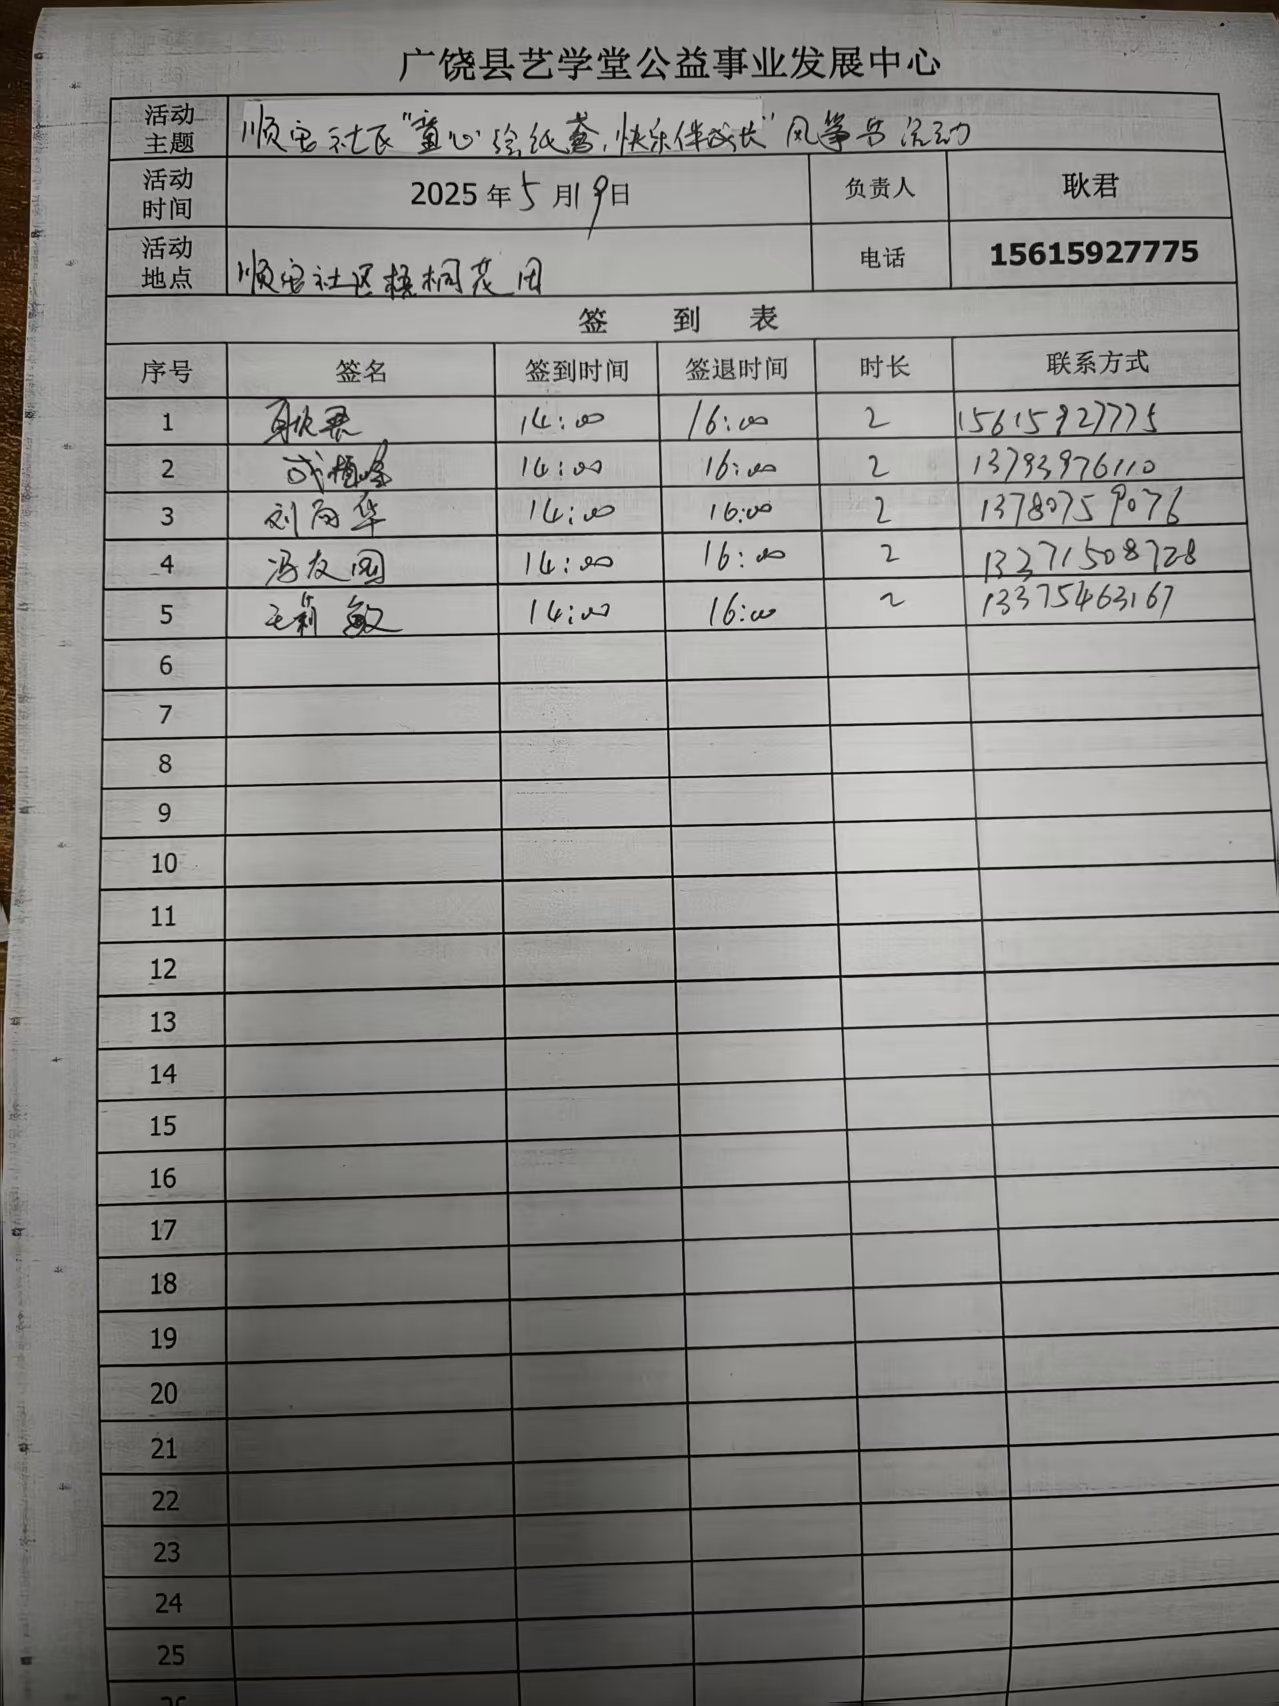 广饶县艺学堂公益事业发展中心
活动主题 顺安社区“童心绘纸鸢，快乐伴成长”风筝节活动
活动时间 2025年5月19日 负责人 耿君
活动地点 顺安社区梧桐花园 电话 15615927775
签 到 表
序号 签名 签到时间 签退时间 时长 联系方式
1 耿君 14:00 16:00 2 15615927775
2 14:00 16:00 2 13793976110
3 刘向华 14:00 16:00 2 13780759076
4 冯友国 14:00 16:00 2 13371508728
5 王莉敏 14:00 16:00 2 13375463167
6
7
8
9
10
11
12
13
14
15
16
17
18
19
20
21
22
23
24
25
26